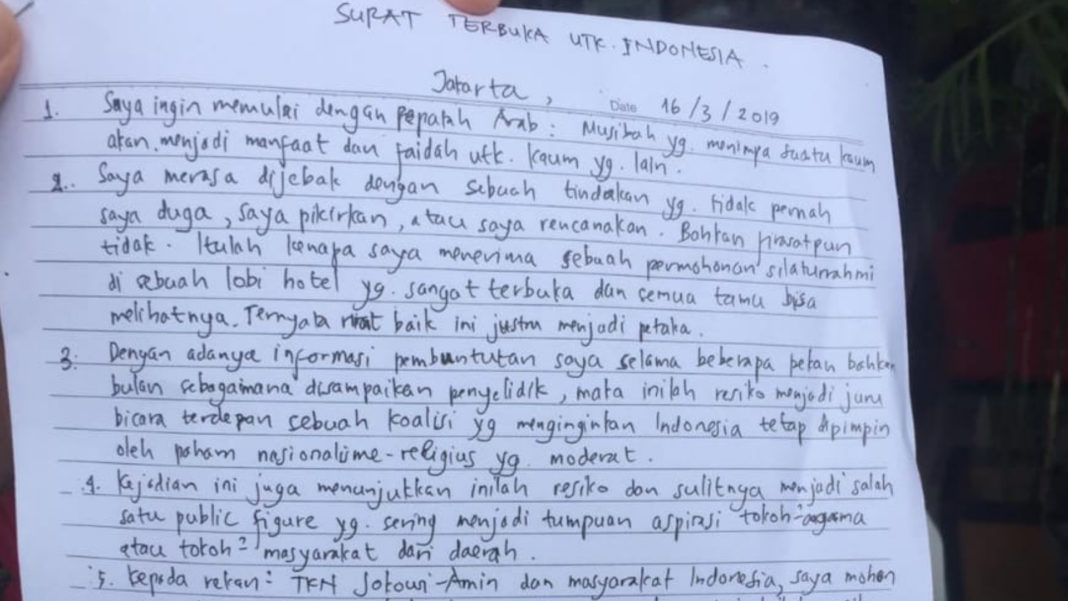 SURAT TERBUKA UTK. INDONESIA.
Jakarta, Date 16/3/2019
1. Saya ingin memulai dengan pepatah Arab: Musibah yg. menimpa suatu kaum
akan menjadi manfaat dan faidah utk. kaum yg. lain.
2. Saya merasa dijebak dengan sebuah tindakan yg. tidak pernah
saya duga, saya pikirkan, atau saya rencanakan. Bahkan firasatpun
tidak. Itulah kenapa saya menerima sebuah permohonan silaturrahmi
di sebuah lobi hotel yg. sangat terbuka dan semua tamu bisa
melihatnya. Ternyata niat baik ini justru menjadi petaka.
3. Dengan adanya informasi pembuntutan saya selama beberapa pekan bahkan
bulan sebagaimana disampaikan penyelidik, maka inilah resiko menjadi juru
bicara terdepan sebuah koalisi yg menginginkan Indonesia tetap dipimpin
oleh paham nasionalisme-religius yg. moderat.
4. Kejadian ini juga menunjukkan inilah resiko dan sulitnya menjadi salah
satu public figure yg. sering menjadi tumpuan aspirasi tokoh² agama
atau tokoh² masyarakat dari daerah.
5. Kepada rekan² TKN Jokowi-Amin dan masyarakat Indonesia, saya mohon